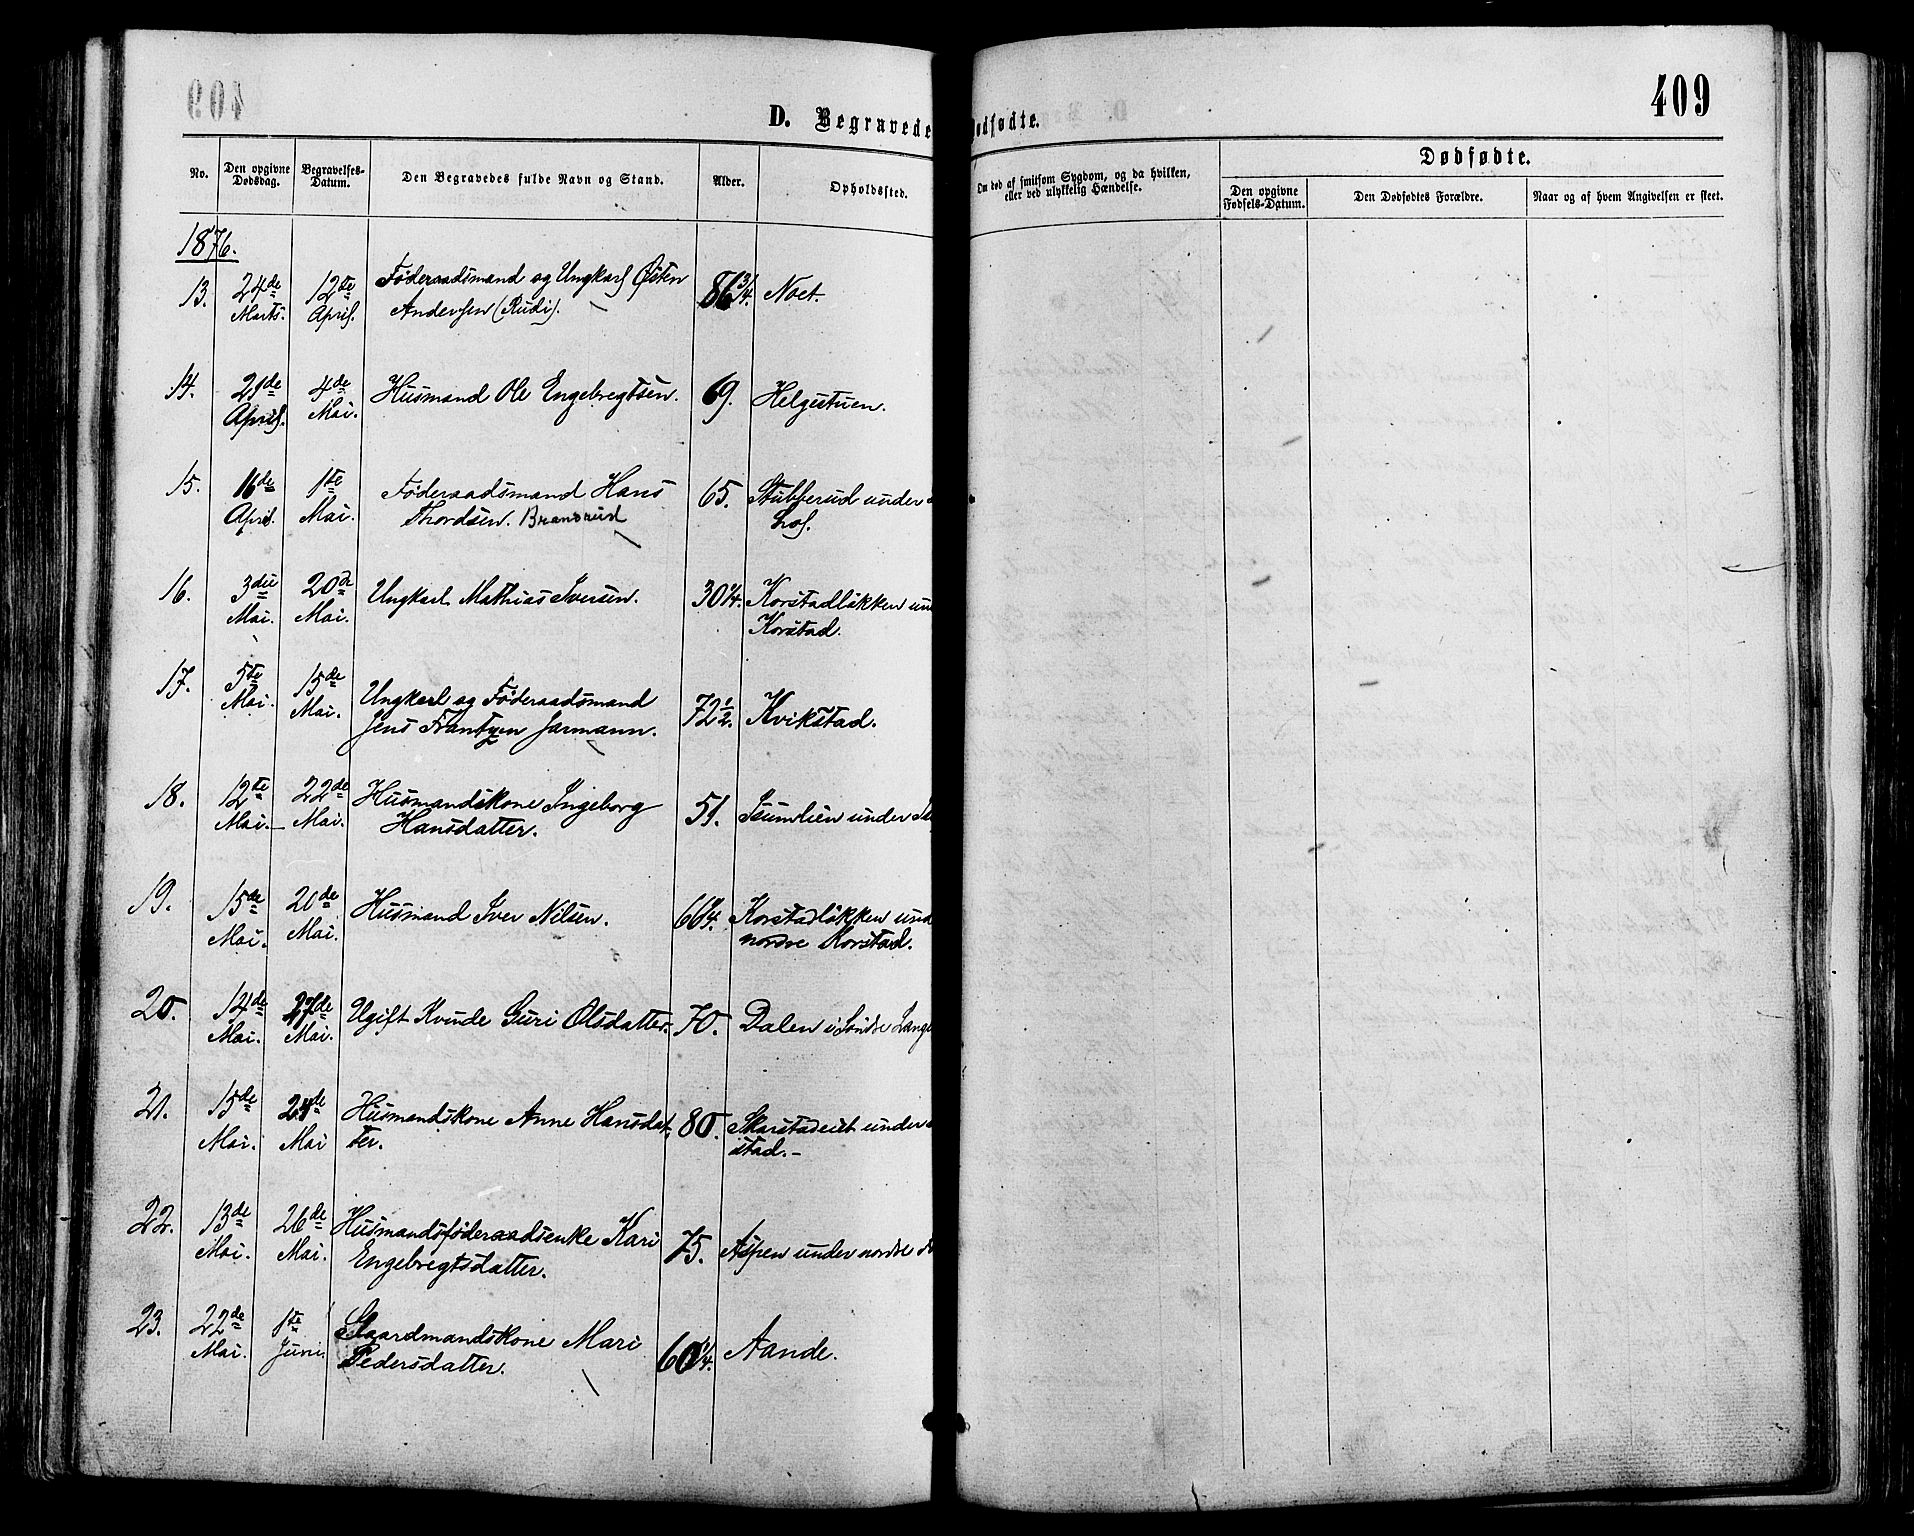 409
D. Begravede
Dødfødte.
No.
Den opgivne Dødsdag.
Begravelses-Datum.
Den Begravedes fulde Navn og Stand.
Alder.
Opholdssted.
Om død af smitsom Sygdom, og da hvilken,
eller ved ulykkelig Hændelse.
Dødfødte.
Den opgivne Fødsels-Datum.
Den Dødfødtes Forældre.
Naar og af hvem Angivelsen er skeet.
1876.
13. 24de Marts. 12te April. Føderaadsmand og Ungkarl Østen 86 3/4. Noet.
Andersen (Rudi).
14. 21de April. 4de Mai. Husmand Ole Engebregtsen. 69. Helgestuen.
15. 16de April. 1ste Mai. Føderaadsmand Hans 65. Stubberud under
Thordsen. Bransrud Lof.
16. 3die Mai. 20de Mai. Ungkarl Mathias Iversen. 30 1/4. Korstadløkken
Korstad.
17. 5te Mai. 15de Mai. Ungkarl og Føderaadsmand 72 1/2. Kvikstad.
Jens Frantzen Jarmann.
18. 12te Mai. 22de Mai. Husmandskone Ingeborg 51. Isumlien under
Hansdatter.
19. 15de Mai. 20de Mai. Husmand Iver Nilsen. 66 1/4. Korstadløkken
nordre Korstad.
20. 14de Mai. 27de Mai. Ugift Kvinde Guri Olsdatter. 70. Dalen i Søndre
21. 15de Mai. 24de Mai Husmandskone Anne Hansdat- 80. Skarstadeiet under
ter. stad.-
22. 13de Mai. 26de Mai. Husmandsføderaadsenke Kari 75. Aspen under nordre
Engebregtsdatter.
23. 22de Mai. 1ste Juni. Gaardmandskone Mari 60 1/4. Aande.
Pedersdatter.